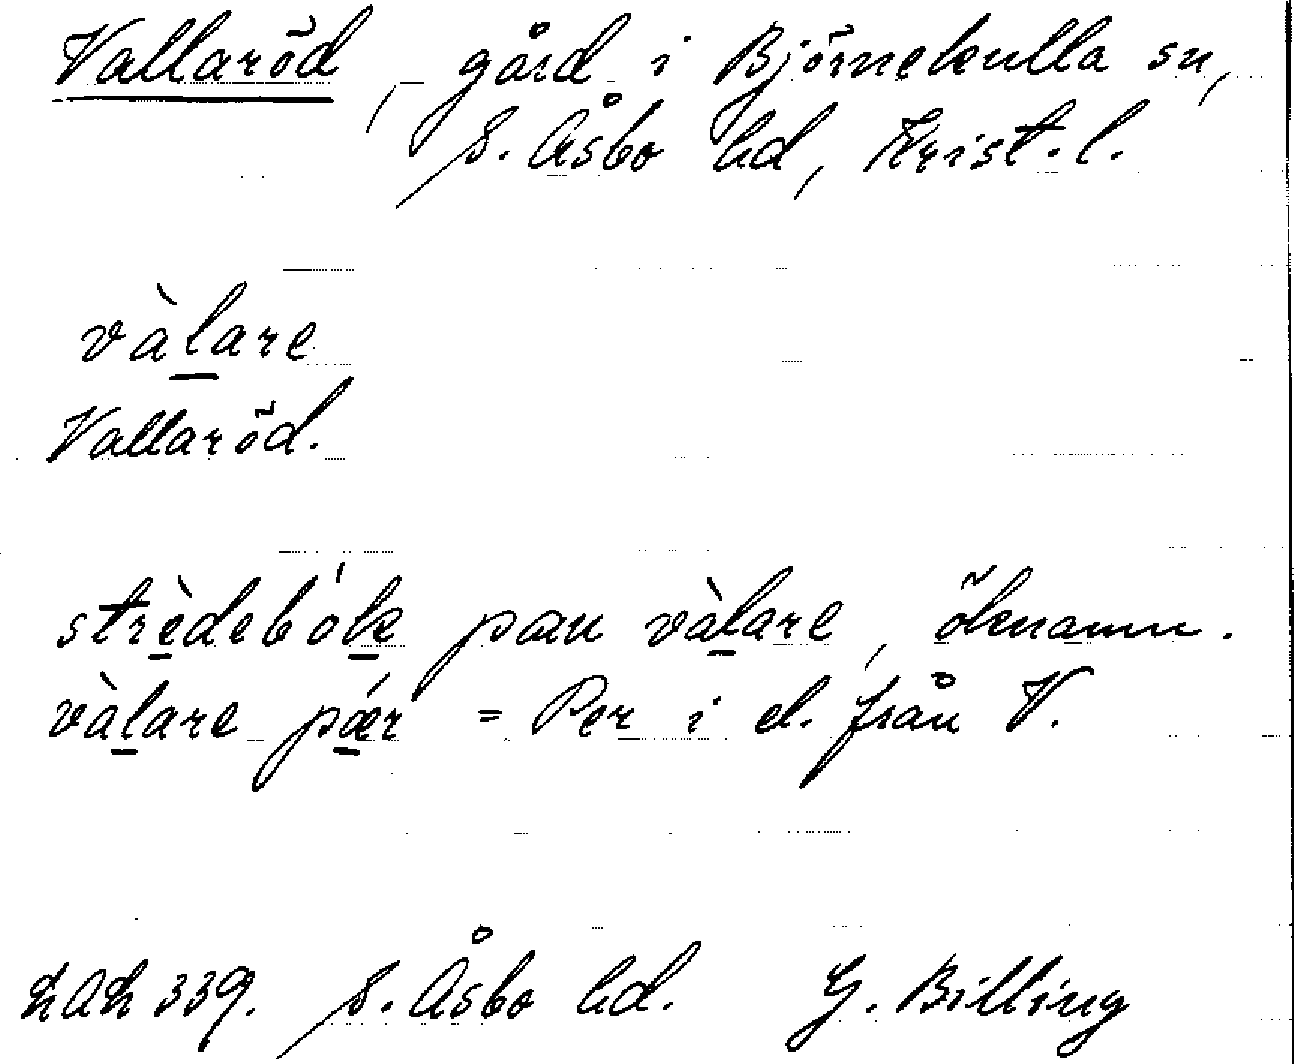 Vallaröd, gård i Björnekulla sn,
S. Åsbo hd, Krist. l.
vàlare
Vallaröd.
strèdebók pau vàlare, öknamn.
vàlare pǽr = Per i el. från V.
LAL 339. S. Åsbo hd. G. Billing